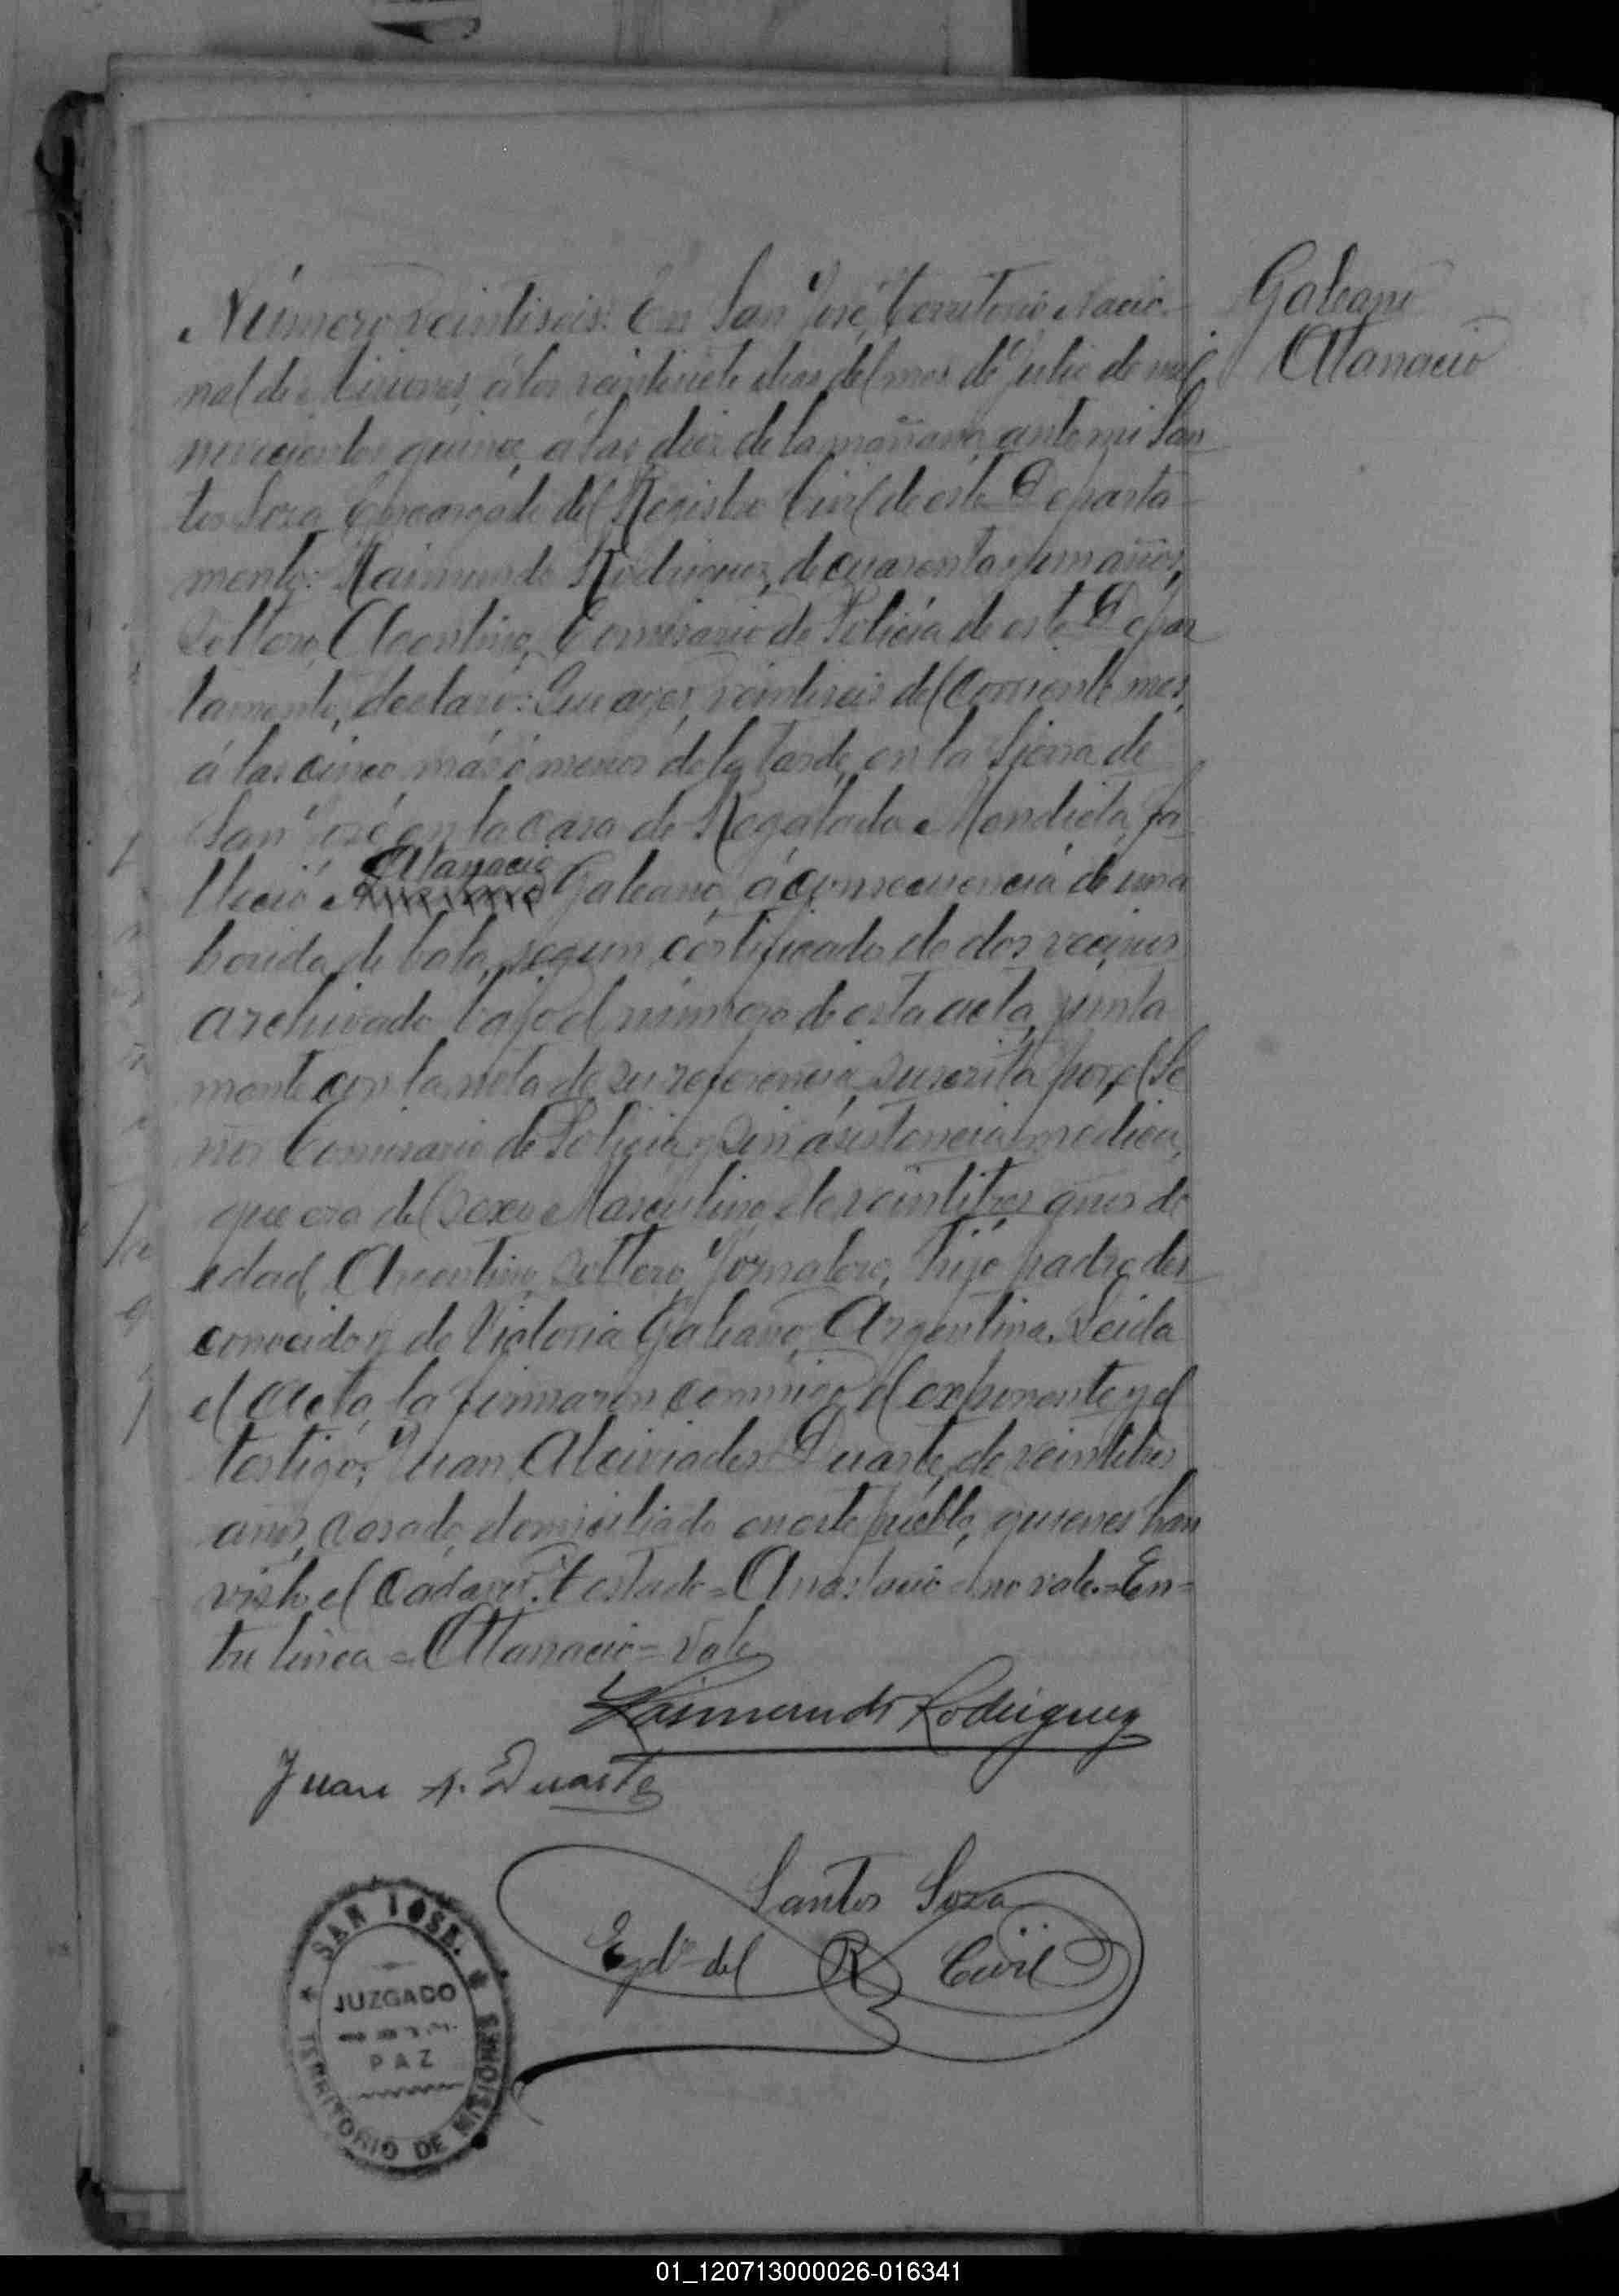 Galeano
Atanacio
Número veintiseis: En San José, Territorio Nacio-
nal de Misiones, á los veintisiete dias del mes de Julio de mil
novecientos quince, á las diez de la mañana, ante mi San
tos Soza Encargado del Registro Civil de este Departa
mento: Raimundo Rodriguez, de cuarenta y un años,
Soltero, Argentino, Comisario de Policia de este Depar
tamento, declaró: Que ayer, veintiseis del corriente mes,
á las cinco más ó menos de la tarde, en la Sierra de
San José en la casa de Regalada Mendieta, fa
Atanacio
lleció Anastacio Galeano, á consecuencia de una
herida de bala, segun certificado de dos vecinos
archivado bajo el número de esta acta, junta
mente con la nota de su referencia, suscrita por el Se
ñor Comisario de Policia y sin asistencia medica,
que era del sexo Masculino, de veintitres años de
edad, Argentino, Soltero, Jornalero, hijo padre des
conocido y de Victoria Galeano, Argentina. Leida
el acta, la firmaron conmigo el exponente y el
testigo: Juan Alciviades Duarte, de veintitres
años, casado, domiciliado en este pueblo, quienes han
visto el Cadaver. Testado=Anastacio=no vale.=En=
tre linea=Atanacio=Vale
Raimundo Rodriguez
Juan A. Duarte
Santos Soza
Egdo del R Civil
SAN JOSE.
JUZGADO
PAZ
TERRITORIO DE MISIONES
01_120713000026-016341